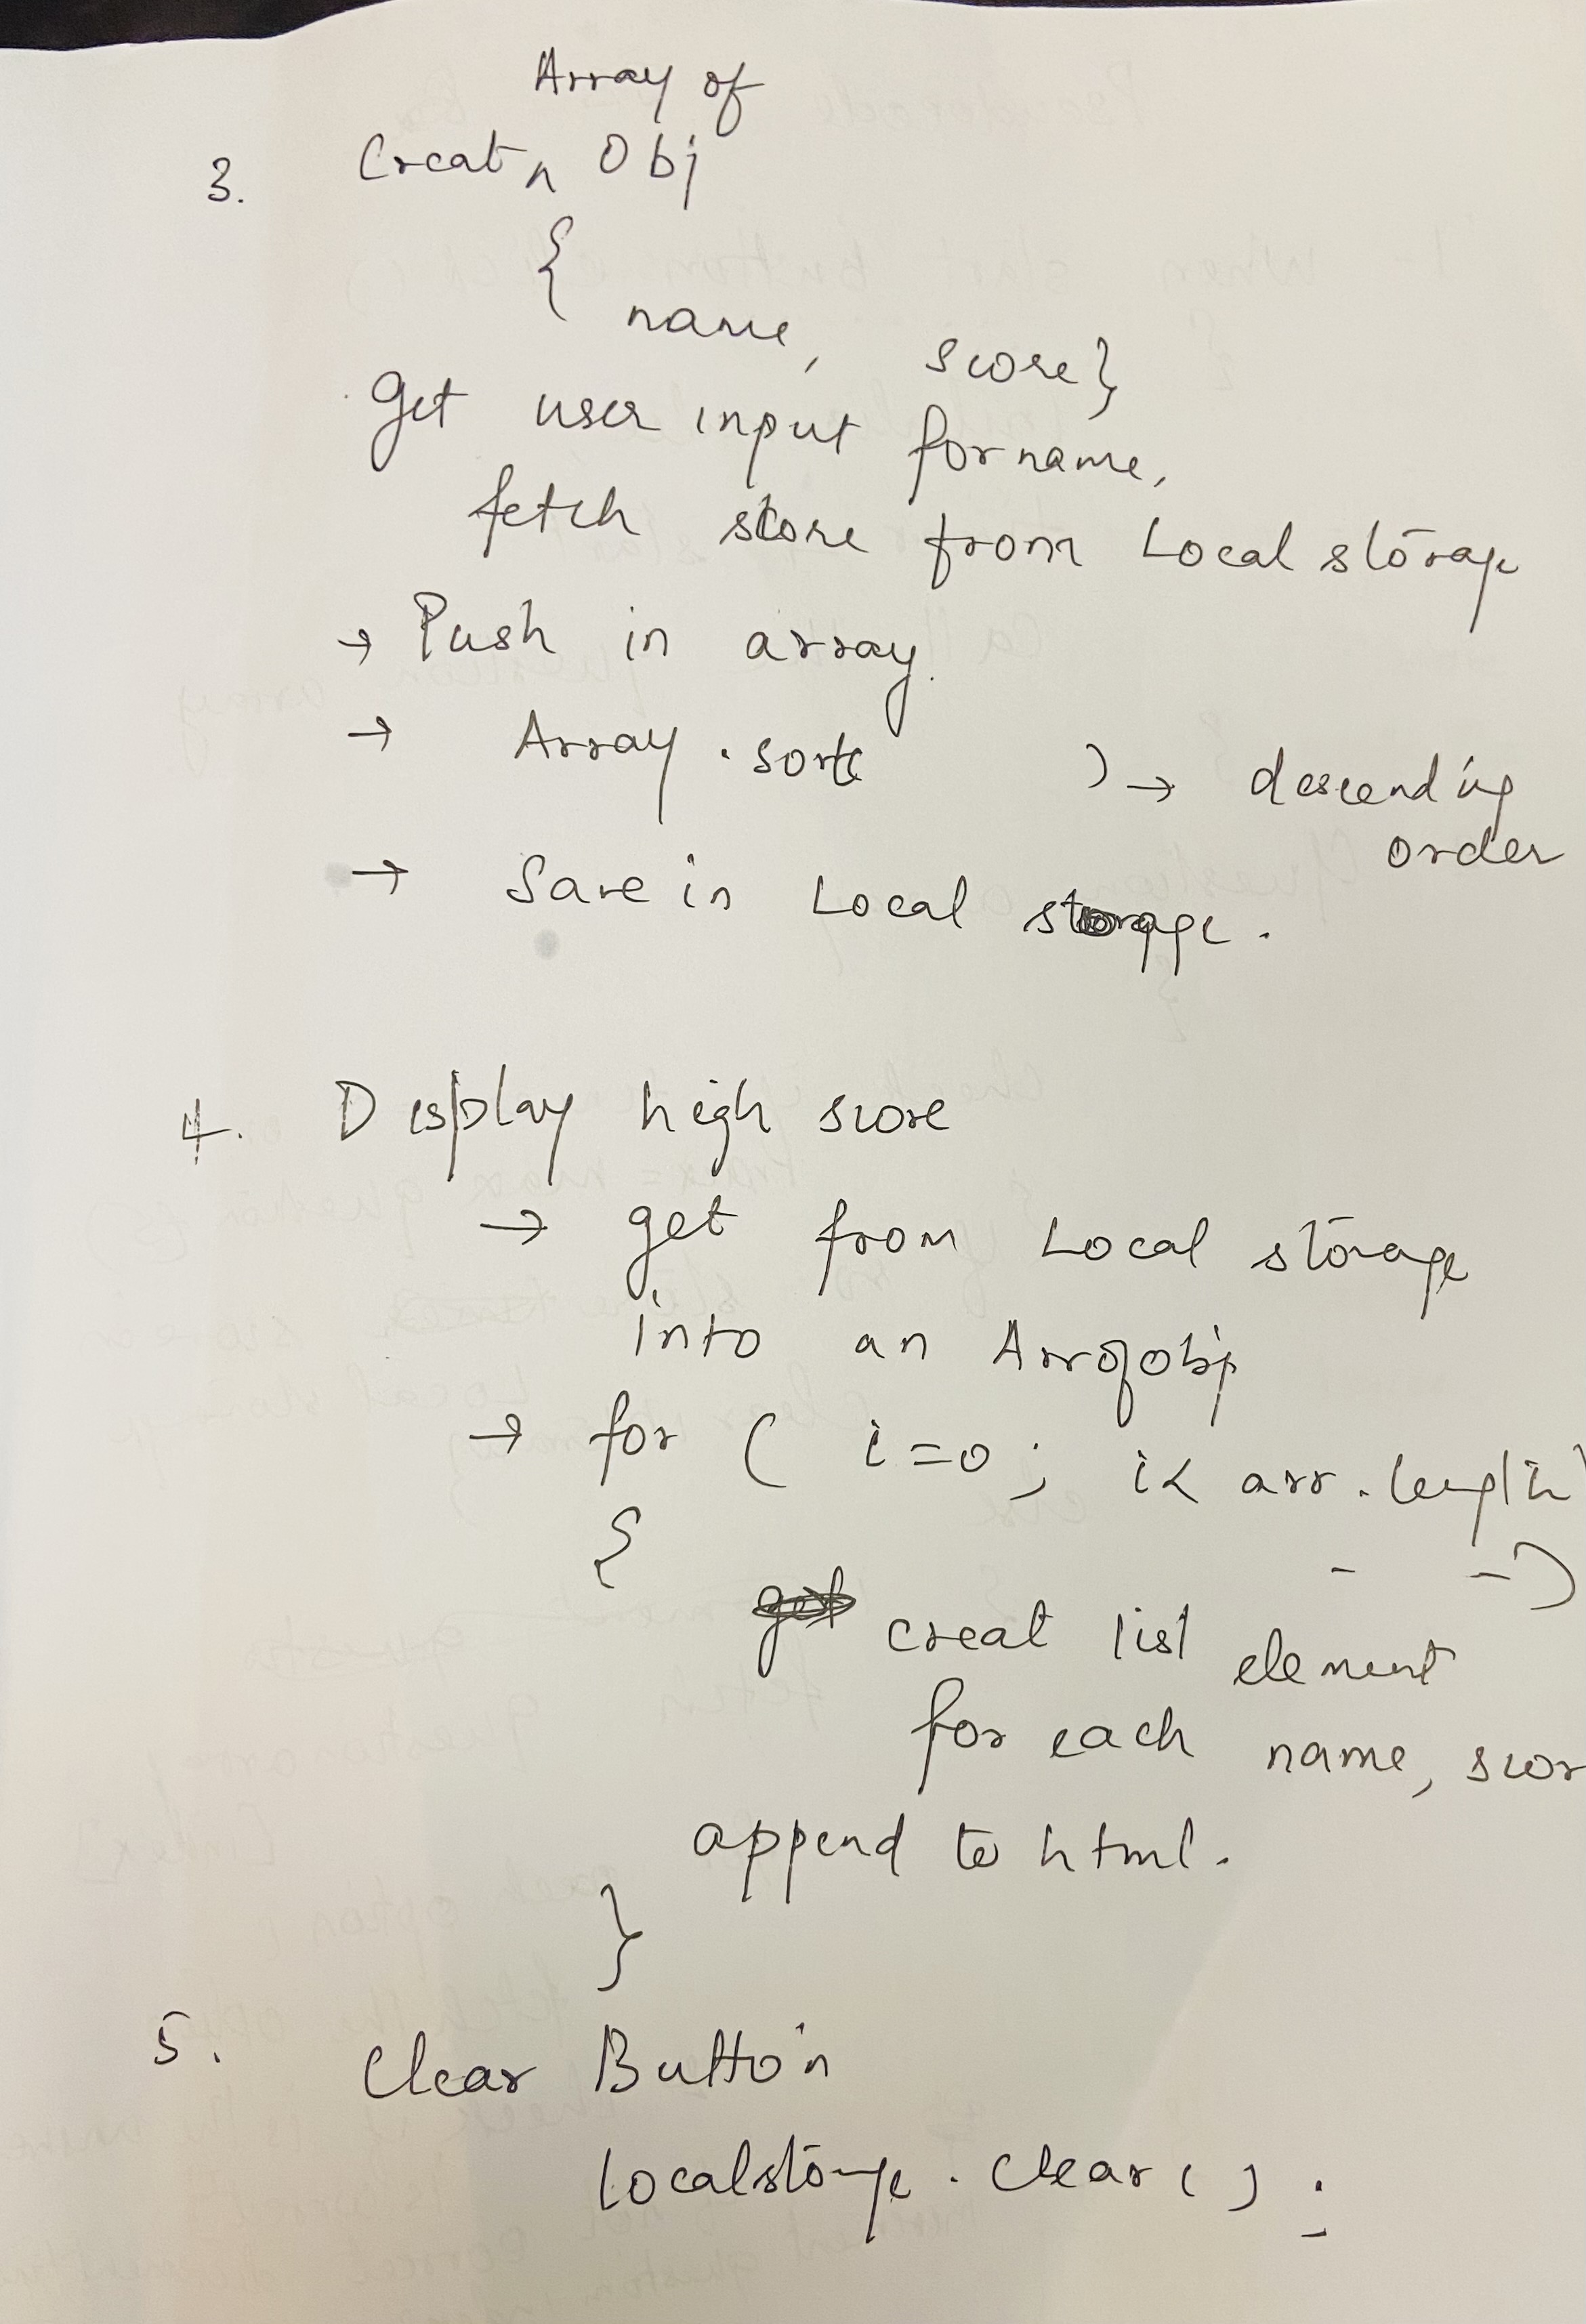 3. Creat ^ Array of Obj
{
name, score}
Get user input for name,
fetch score from Local storage
→ Push in array.
→ Array . sort( ) → descending
order
→ Save in Local storage.
4. Display high score
→ get from Local storage
into an Arrofobj
→ for ( i=0 ; i< arr . length
- - )
{
creat list element
for each name, scor
append to html.
}
5. Clear Button
localstorage . clear ( ) ;